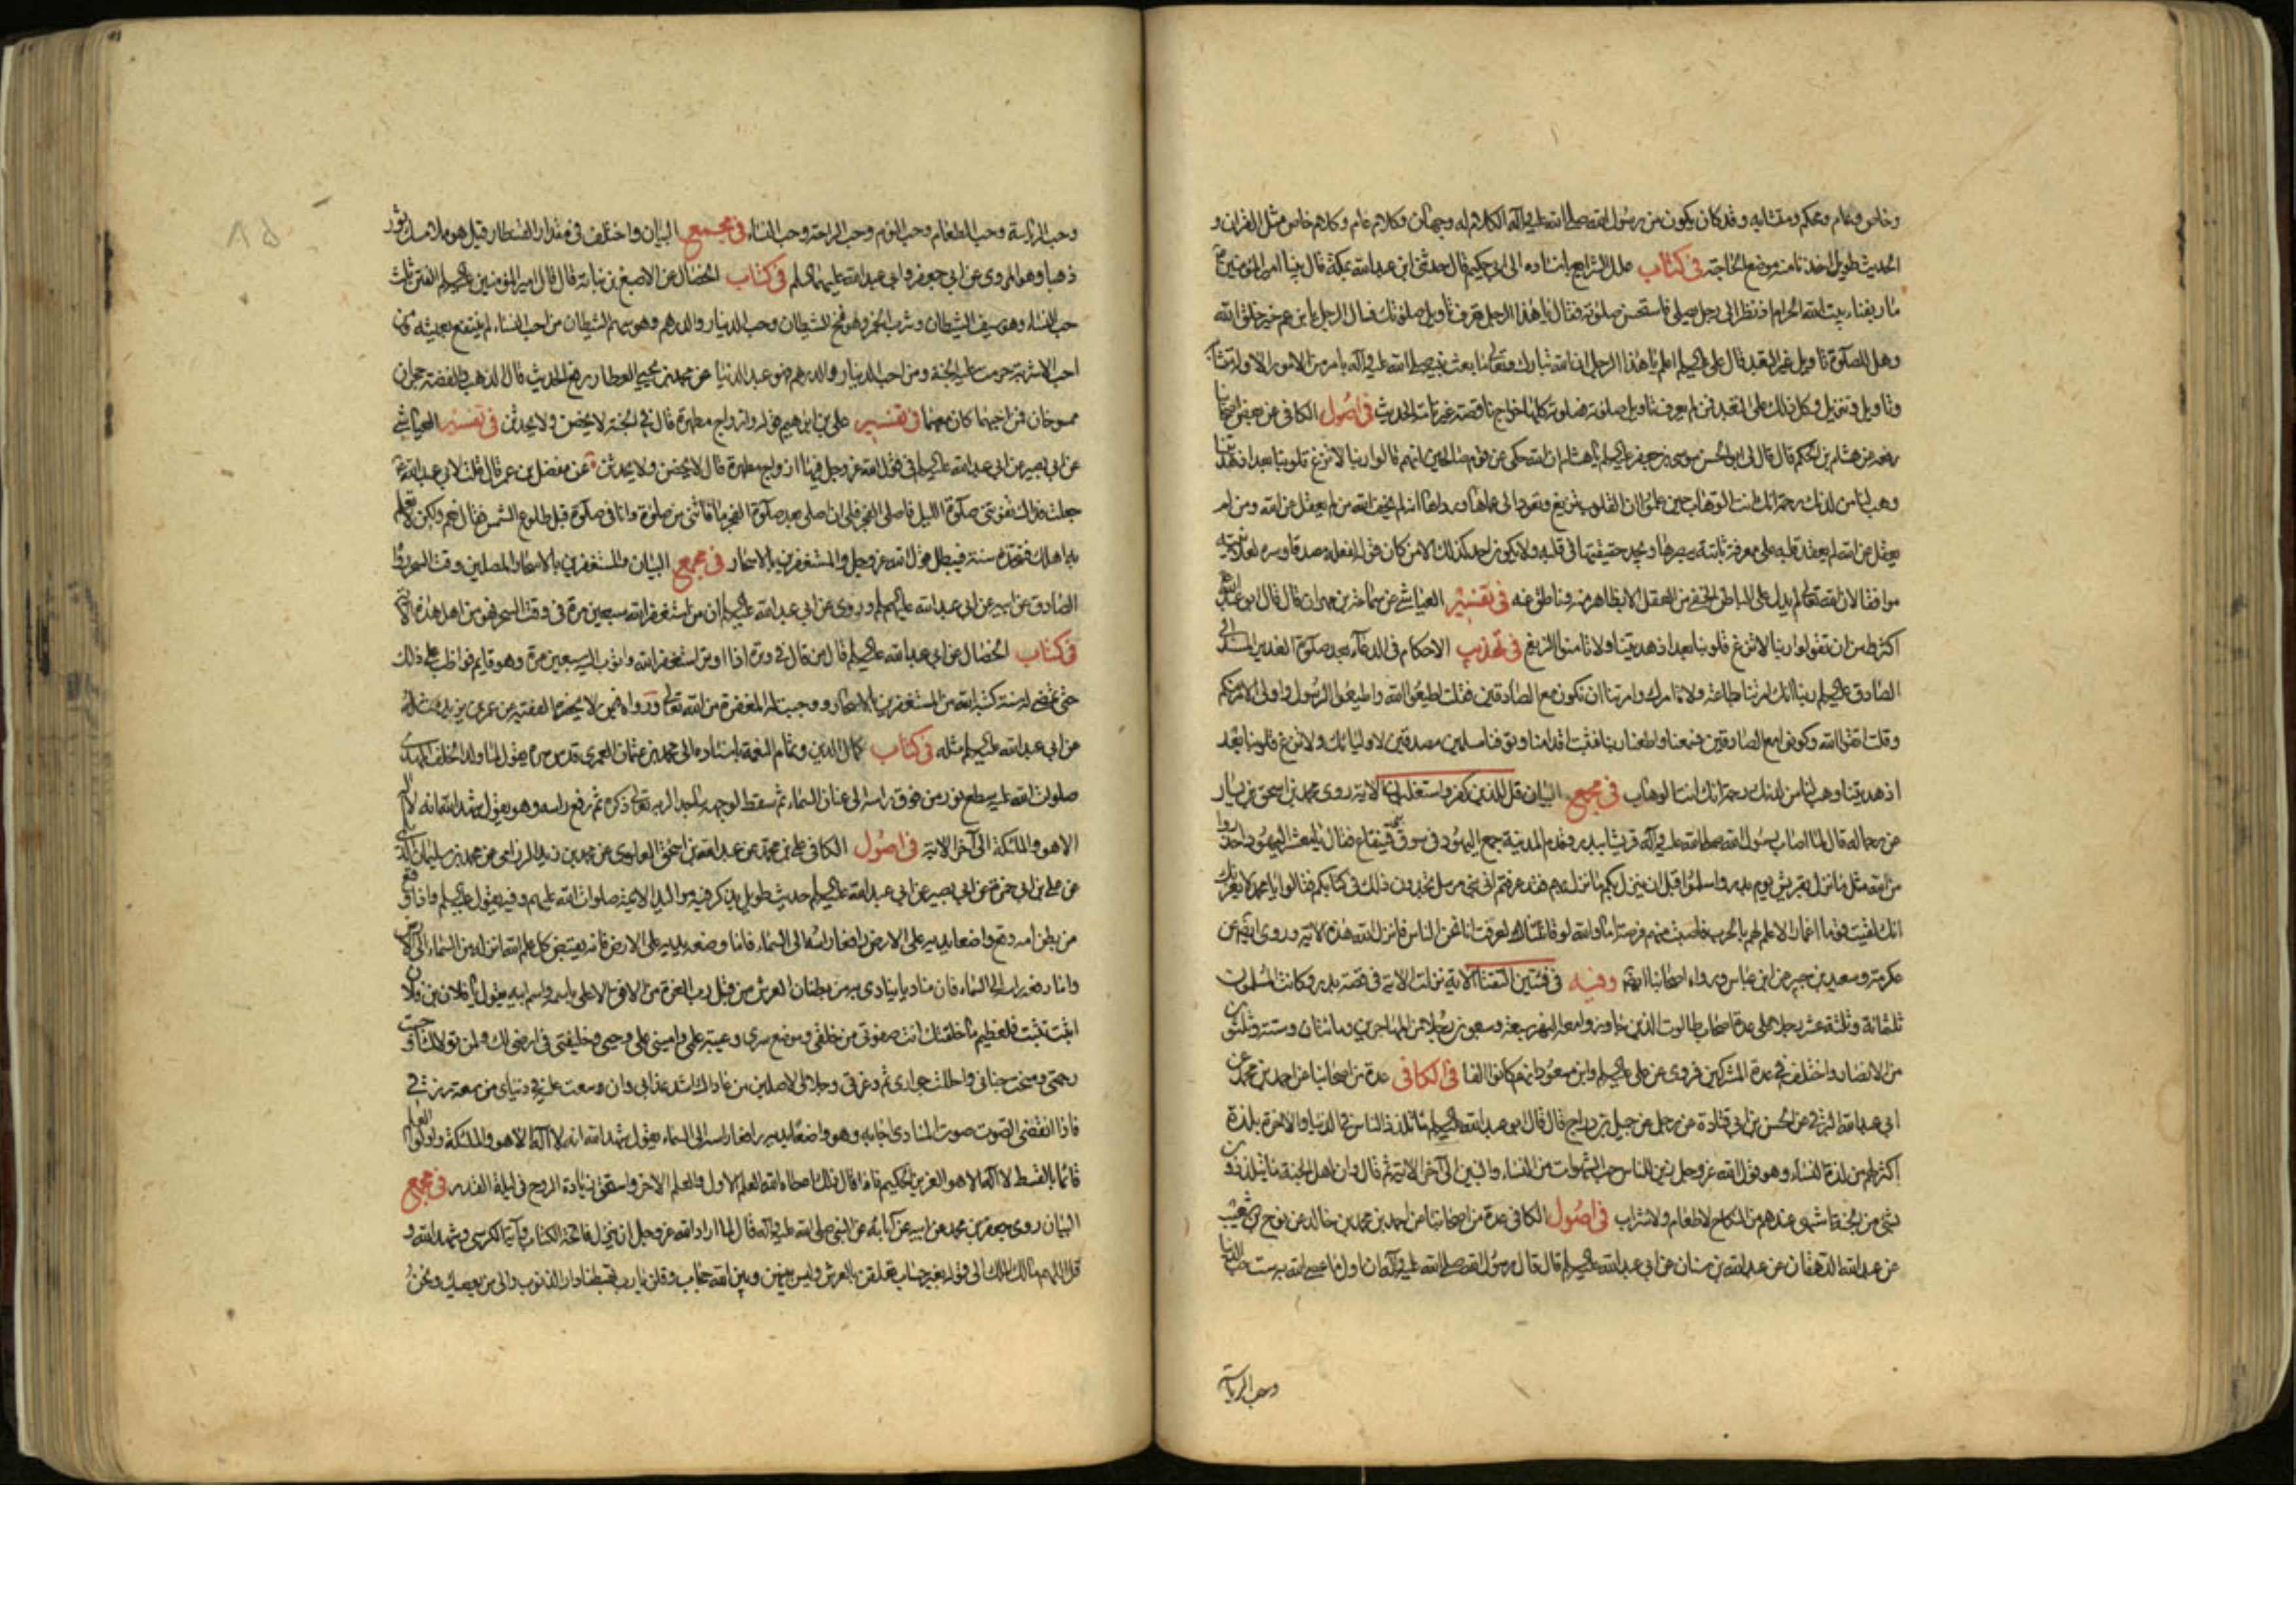 وخاص وعام ومحكم ومتشابه وقد كان يكون من رسول الله صلى الله عليه وآله الكلام له وجهان وكلام عام وكلام خاص مثل القرآن و
الحديث طويل اخذنا منه موضع الحاجة في كتاب علل الشرايع باسناده الى ابى حكيم قال حدثنى ابن عبد الله بمكة قال بينا امير المؤمنين ع
مار بفناء بيت الله الحرام اذ نظر الى رجل يصلى فاستحسن صلوته فقال يا هذا الرجل تعرف تأويل صلوتك فقال الرجل يا بن عم خير خلق الله
وهل للصلوة تاويل غير التعبد قال على عليه السلم اعلم يا هذا الرجل ان الله تبارك وتعالى ما بعث نبيه صلى الله عليه وآله بامر من الامور الا وله متشابه
وتاويل وتنزيل وكل ذلك على التعبد فمن لم يعرف تاويل صلوته فصلوته كلها خداج ناقصة غير تامة الحديث في اصول الكافى عن بعض اصحابنا
رفعه عن هشام بن الحكم قال قال لى ابو الحسن موسى بن جعفر عليه السلم يا هشام ان الله حكى عن قوم صالحين انهم قالوا ربنا لا تزغ قلوبنا بعد اذ هديتنا
وهب لنا من لدنك رحمة انك انت الوهاب حين علموا ان القلوب تزيغ وتعود الى عماها ورداها انه لم يخف الله من لم يعقل عن الله ومن لم
يعقل عن الله لم يعقد قلبه على معرفة ثابتة يبصرها ويجد حقيقتها في قلبه ولا يكون احد كذلك الا من كان قوله لفعله مصدقا وسره لعلانيته
موافقا لان الله تعالى لم يدل على الباطن الخفى من العقل الا بظاهر منه وناطق عنه في تفسير العياشى عن سماعة بن مهران قال قال ابو عبد الله ع
اكثروا من ان تقولوا ربنا لا تزغ قلوبنا بعد اذ هديتنا ولا تامنوا الزيغ في تهذيب الاحكام في الدعاء بعد صلوة الغدير المسند الى
الصادق عليه السلم ربنا انك امرتنا بطاعة ولاة امرك وامرتنا ان نكون مع الصادقين فقلت اطيعوا الله واطيعوا الرسول واولى الامر منكم
وقلت اتقوا الله وكونوا مع الصادقين فسمعنا واطعنا ربنا فثبت اقدامنا وتوفنا مسلمين مصدقين لاوليائك ولا تزغ قلوبنا بعد
اذ هديتنا وهب لنا من لدنك رحمة انك انت الوهاب في مجمع البيان قل للذين كفروا ستغلبون الاية روى محمد بن اسحق بن يسار
عن رجاله قال لما اصاب رسول الله صلى الله عليه وآله قريشا ببدر وقدم المدينة جمع اليهود في سوق قينقاع فقال يا معشر اليهود احذروا
من الله مثل ما نزل بقريش يوم بدر واسلموا قبل ان ينزل بكم ما نزل بهم فقد عرفتم انى نبى مرسل تجدون ذلك في كتابكم فقالوا يا محمد لا يغرنك
انك لقيت قوما اغمارا لا علم لهم بالحرب فاصبت منهم فرصة اما والله لو قاتلتنا لعرفت انا نحن الناس فانزل الله هذه الاية وروى ايضا عن
عكرمة وسعيد بن جبير عن ابن عباس ورواه اصحابنا ايضا وفيه في فئتين التقتا الاية نزلت الاية في قصة بدر وكانت المسلمون
ثلثمائة وثلثة عشر رجلا على عدة اصحاب طالوت الذين جاوزوا معه النهر سبعة وسبعون رجلا من المهاجرين ومائتان وستة وثلثون
من الانصار واختلف في عدة المشركين فروى عن على عليه السلم وابن مسعود انهم كانوا الفا في الكافى عدة من اصحابنا عن احمد بن محمد عن
ابى عبد الله البرقى عن الحسن بن ابى قتادة عن رجل عن جميل بن دراج قال قال ابو عبد الله عليه السلم ما تلذذ الناس في الدنيا والاخرة بلذة
اكثر لهم من لذة النساء وهو قول الله عز وجل زين للناس حب الشهوات من النساء والبنين الى آخر الاية ثم قال وان اهل الجنة ما يتلذذون
بشى من الجنة اشهى عندهم من النكاح لا طعام ولا شراب في اصول الكافى عدة من اصحابنا عن احمد بن محمد بن خالد عن نوح بن شعيب
عن عبد الله الدهقان عن عبد الله بن سنان عن ابى عبد الله عليه السلم قال قال رسول الله صلى الله عليه وآله ان اول ما عصى الله به ست حب الدنيا
وحب الرياسة
وحب الرياسة وحب الطعام وحب النوم وحب الراحة وحب النساء في مجمع البيان واختلف في مقدار القنطار قيل هو ملاء مسك ثور
ذهبا وهو المروى عن ابى جعفر وابى عبد الله عليهما السلم في كتاب الخصال عن الاصبغ بن نباتة قال قال امير المؤمنين عليه السلم الفتن ثلث
حب النساء وهو سيف الشيطان وشرب الخمر وهو فخ الشيطان وحب الدينار والدرهم وهو سهم الشيطان من احب النساء لم ينتفع بعيشه ومن
احب الاشربة حرمت عليه الجنة ومن احب الدينار والدرهم فهو عبد الدنيا عن محمد بن يحيى العطار يرفع الحديث قال الذهب والفضة حجران
ممسوخان فمن احبهما كان معهما في تفسير على بن ابراهيم قوله وازواج مطهرة قال في الجنة لا يحضن ولا يحدثن في تفسير العياشى
عن ابى بصير عن ابى عبد الله عليه السلم في قول الله عز وجل فيها ازواج مطهرة قال لا يحضن ولا يحدثن عن مفضل بن عمر قال قلت لابى عبد الله ع
جعلت فداك تفوتنى صلوة الليل فاصلى الفجر فلى ان اصلى بعد صلوة الفجر ما فاتنى من صلوة وانا في صلوة قبل طلوع الشمس فقال نعم ولكن لا تعلم
به اهلك فتتخذه سنة فيبطل قول الله عز وجل والمستغفرين بالاسحار في مجمع البيان والمستغفرين بالاسحار المصلين وقت السحر رواه
الصادق عن ابيه عن ابى عبد الله عليهم السلم وروى عن ابى عبد الله عليه السلم ان من استغفر الله سبعين مرة في وقت السحر فهو من اهل هذه الاية
في كتاب الخصال عن ابى عبد الله عليه السلم قال من قال في وتره اذا اوتر استغفر الله واتوب اليه سبعين مرة وهو قايم فواظب على ذلك
حتى تمضى له سنة كتبه الله من المستغفرين بالاسحار ووجبت له المغفرة من الله تعالى ورواه فيمن لا يحضره الفقيه عن عمر بن يزيد
عن ابى عبد الله عليه السلم مثله في كتاب كمال الدين وتمام النعمة باسناده الى محمد بن عثمان العمرى قدس سره يقول لما ولد الخلف المهدى
صلوات الله عليه سطع نور من فوق راسه الى عنان السماء ثم سقط لوجهه ساجدا لربه تعالى ذكره ثم رفع راسه وهو يقول شهد الله انه لا اله
الا هو والملئكة الى آخر الاية في اصول الكافى على بن محمد عن عبد الله بن اسحق العلوى عن محمد بن زيد الرزامى عن محمد بن سليمان الديلمى
عن على بن ابى حمزة عن ابى بصير عن ابى عبد الله عليه السلم حديث طويل يذكر فيه مواليد الائمة صلوات الله عليهم وفيه يقول عليه السلم واذا وقع
من بطن امه وقع واضعا يديه على الارض رافعا راسه الى السماء فاما وضعه يديه على الارض فانه يقبض كل علم لله انزله من السماء الى الارض
واما رفعه راسه الى السماء فان مناديا ينادى به من بطنان العرش من قبل رب العزة من الافق الاعلى باسمه واسم ابيه يقول يا فلان بن فلان
اثبت تثبت فلعظيم ما خلقتك انت صفوتى من خلقى وموضع سرى وعيبة علمى وامينى على وحيى وخليفتى في ارضى لك ولمن تولاك اوجبت
رحمتى ومنحت جنانى واحللت جوارى ثم وعزتى وجلالى لاصلين من عاداك اشد عذابى وان وسعت عليه في دنياى من سعة رزقى
فاذا انقضى الصوت صوت المنادى اجابه وهو واضعا يديه رافعا راسه الى السماء يقول شهد الله انه لا اله الا هو والملئكة واولوا العلم
قائما بالقسط لا اله الا هو العزيز الحكيم فاذا قال ذلك اعطاه الله العلم الاول والعلم الاخر واستحق زيادة الروح في ليلة القدر في مجمع
البيان روى جعفر بن محمد عن ابيه عن آبائه عن النبى صلى الله عليه وآله قال لما اراد الله عز وجل ان ينزل فاتحة الكتاب وآية الكرسى وشهد الله و
قل اللهم مالك الملك الى قوله بغير حساب تعلقن بالعرش وليس بينهن وبين الله حجاب وقلن يا رب تهبطنا دار الذنوب والى من يعصيك ونحن
٨٥